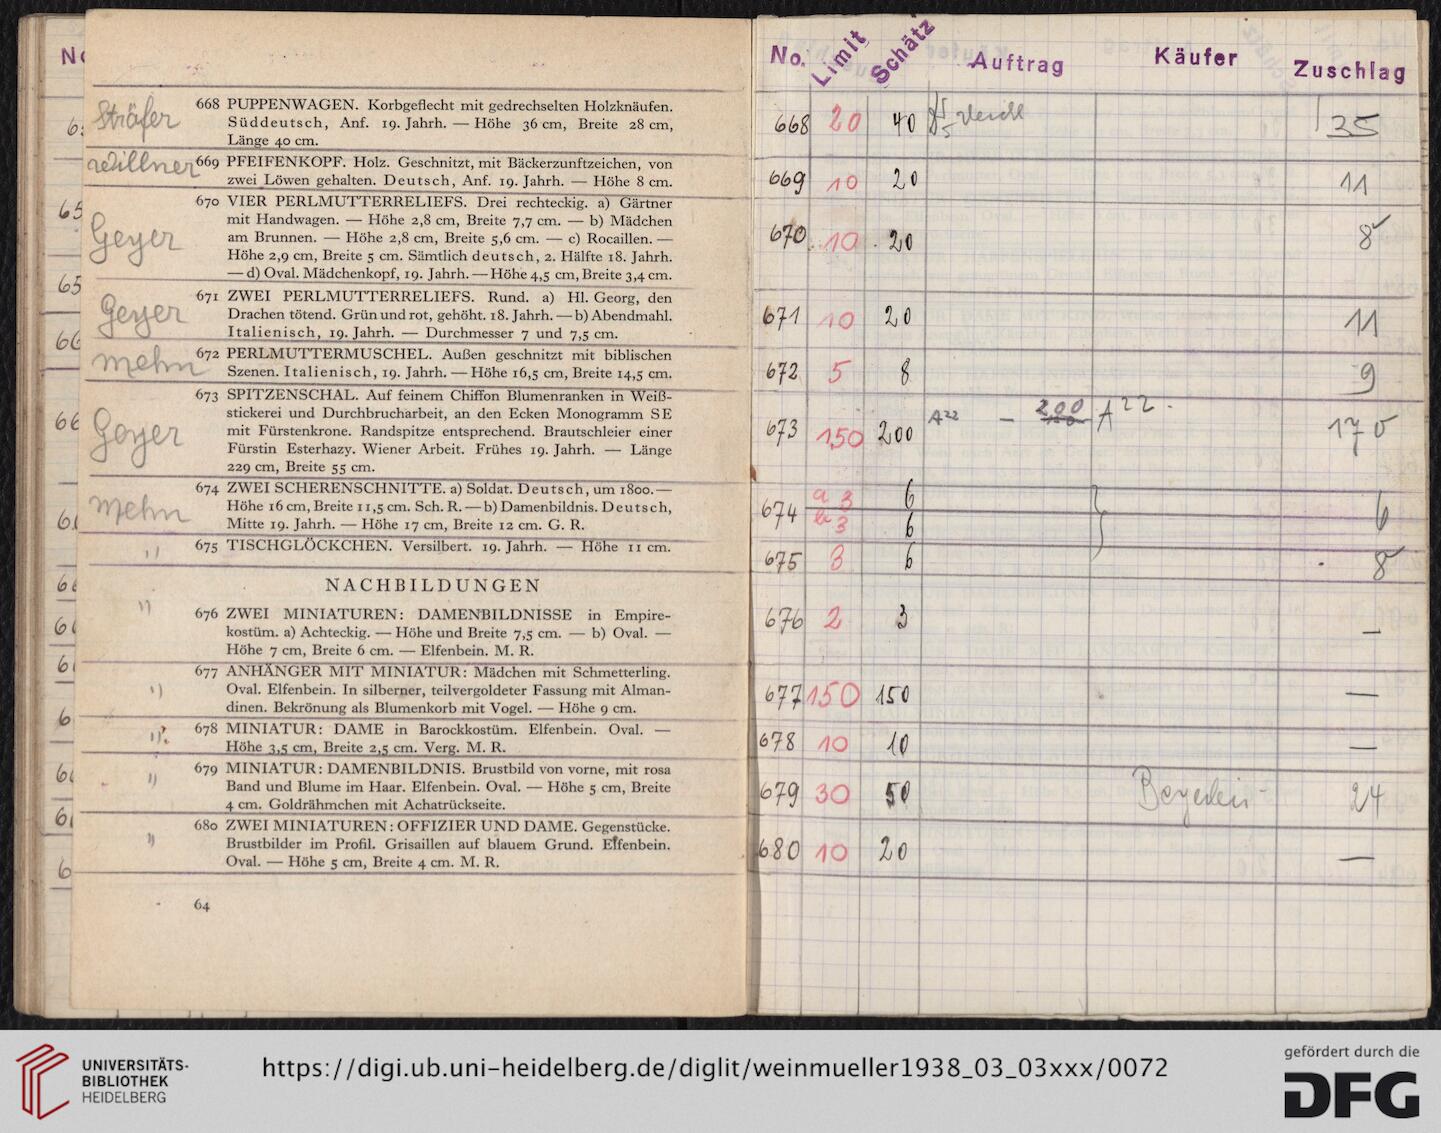 Sträfer
668 PUPPENWAGEN. Korbgeflecht mit gedrechselten Holzknäufen.
Süddeutsch, Anf. 19. Jahrh. — Höhe 36 cm, Breite 28 cm,
Länge 40 cm.
Willner
669 PFEIFENKOPF. Holz. Geschnitzt, mit Bäckerzunftzeichen, von
zwei Löwen gehalten. Deutsch, Anf. 19. Jahrh. — Höhe 8 cm.
Geyer
670 VIER PERLMUTTERRELIEFS. Drei rechteckig. a) Gärtner
mit Handwagen. — Höhe 2,8 cm, Breite 7,7 cm. — b) Mädchen
am Brunnen. — Höhe 2,8 cm, Breite 5,6 cm. — c) Rocaillen. —
Höhe 2,9 cm, Breite 5 cm. Sämtlich deutsch, 2. Hälfte 18. Jahrh.
— d) Oval. Mädchenkopf, 19. Jahrh. — Höhe 4,5 cm, Breite 3,4 cm.
Geyer
671 ZWEI PERLMUTTERRELIEFS. Rund. a) Hl. Georg, den
Drachen tötend. Grün und rot, gehöht. 18. Jahrh. — b) Abendmahl.
Italienisch, 19. Jahrh. — Durchmesser 7 und 7,5 cm.
Mehn
672 PERLMUTTERMUSCHEL. Außen geschnitzt mit biblischen
Szenen. Italienisch, 19. Jahrh. — Höhe 16,5 cm, Breite 14,5 cm.
Geyer
673 SPITZENSCHAL. Auf feinem Chiffon Blumenranken in Weiß-
stickerei und Durchbrucharbeit, an den Ecken Monogramm SE
mit Fürstenkrone. Randspitze entsprechend. Brautschleier einer
Fürstin Esterhazy. Wiener Arbeit. Frühes 19. Jahrh. — Länge
229 cm, Breite 55 cm.
Mehn
674 ZWEI SCHERENSCHNITTE. a) Soldat. Deutsch, um 1800. —
Höhe 16 cm, Breite 11,5 cm. Sch. R. — b) Damenbildnis. Deutsch,
Mitte 19. Jahrh. — Höhe 17 cm, Breite 12 cm. G. R.
" 675 TISCHGLÖCKCHEN. Versilbert. 19. Jahrh. — Höhe 11 cm.
NACHBILDUNGEN
" 676 ZWEI MINIATUREN: DAMENBILDNISSE in Empire-
kostüm. a) Achteckig. — Höhe und Breite 7,5 cm. — b) Oval. —
Höhe 7 cm, Breite 6 cm. — Elfenbein. M. R.
" 677 ANHÄNGER MIT MINIATUR: Mädchen mit Schmetterling.
Oval. Elfenbein. In silberner, teilvergoldeter Fassung mit Alman-
dinen. Bekrönung als Blumenkorb mit Vogel. — Höhe 9 cm.
" 678 MINIATUR: DAME in Barockkostüm. Elfenbein. Oval. —
Höhe 3,5 cm, Breite 2,5 cm. Verg. M. R.
" 679 MINIATUR: DAMENBILDNIS. Brustbild von vorne, mit rosa
Band und Blume im Haar. Elfenbein. Oval. — Höhe 5 cm, Breite
4 cm. Goldrähmchen mit Achatrückseite.
" 680 ZWEI MINIATUREN: OFFIZIER UND DAME. Gegenstücke.
Brustbilder im Profil. Grisaillen auf blauem Grund. Elfenbein.
Oval. — Höhe 5 cm, Breite 4 cm. M. R.
64
No. Limit Schätz Auftrag Käufer Zuschlag
668 20 40 35
669 10 20 11
670 10 20 8
671 10 20 11
672 5 8 9
673 150 200 A22 — 200 A22 170
674 a 3 6 6
b 3 6
675 3 6 8
676 2 3 —
677 150 150 —
678 10 10 —
679 30 50 24
680 10 20 —
UNIVERSITÄTS-
BIBLIOTHEK
HEIDELBERG
https://digi.ub.uni-heidelberg.de/diglit/weinmueller1938_03_03xxx/0072
gefördert durch die
DFG